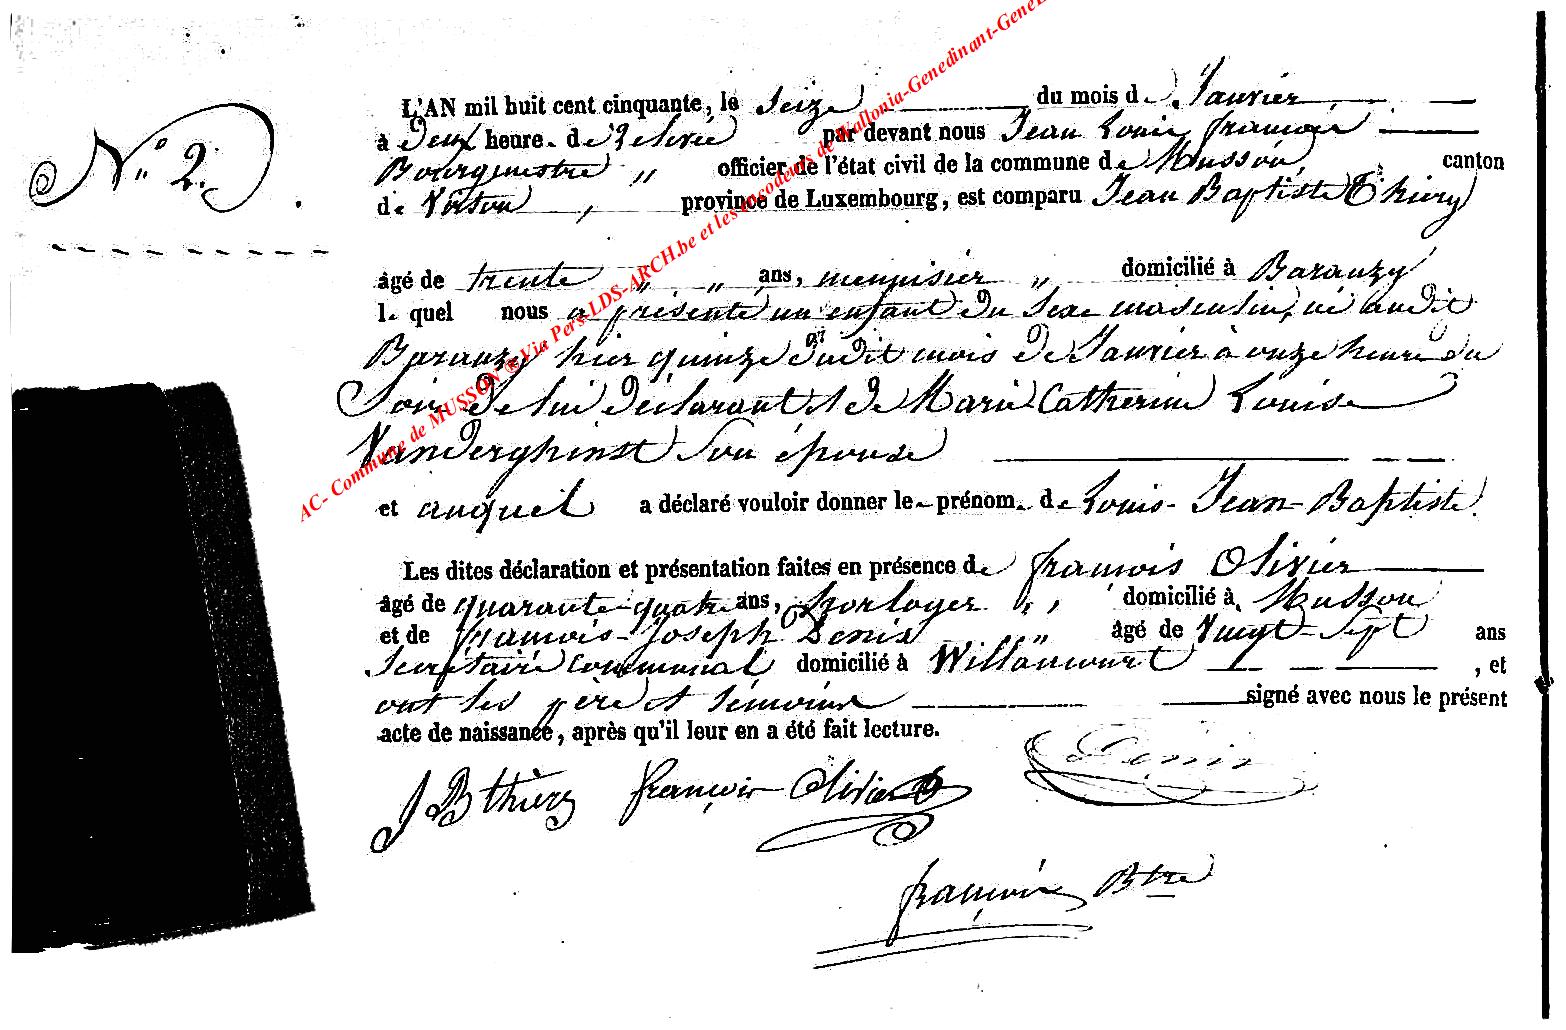 N° 2.
L'AN mil huit cent cinquante, le Seize du mois de Janvier
à Deux heure de Relevée par devant nous Jean Louis françois
Bourgmestre „ officier de l'état civil de la commune de Musson, canton
de Virton, province de Luxembourg, est comparu Jean Baptiste Thiery
âgé de trente „ „ ans, menuisier „ domicilié à Baranzy
le quel nous a présenté un enfant du Sexe masculin, né audit
Baranzy hier quinze dudit mois de Janvier à onze heure du
Soir, de lui déclarant et de Marie Catherine Louise
Vanderghinst Son épouse
et auquel a déclaré vouloir donner le prénom de Louis-Jean-Baptiste.
Les dites déclaration et présentation faites en présence de françois Olivier
âgé de quarante-quatre ans, horloger „ , domicilié à Musson
et de françois-Joseph Denis „ âgé de Vingt-Sept ans
Secrétaire Communal domicilié à Willancourt , et
ont les père et témoins signé avec nous le présent
acte de naissance, après qu'il leur en a été fait lecture.
JB thiery françois Olivier Denis
françois Btre
AC- Commune de MUSSON ® Via Pers-LDS-ARCH.be et les encodeurs de Wallonia-Genedinant-GeneL